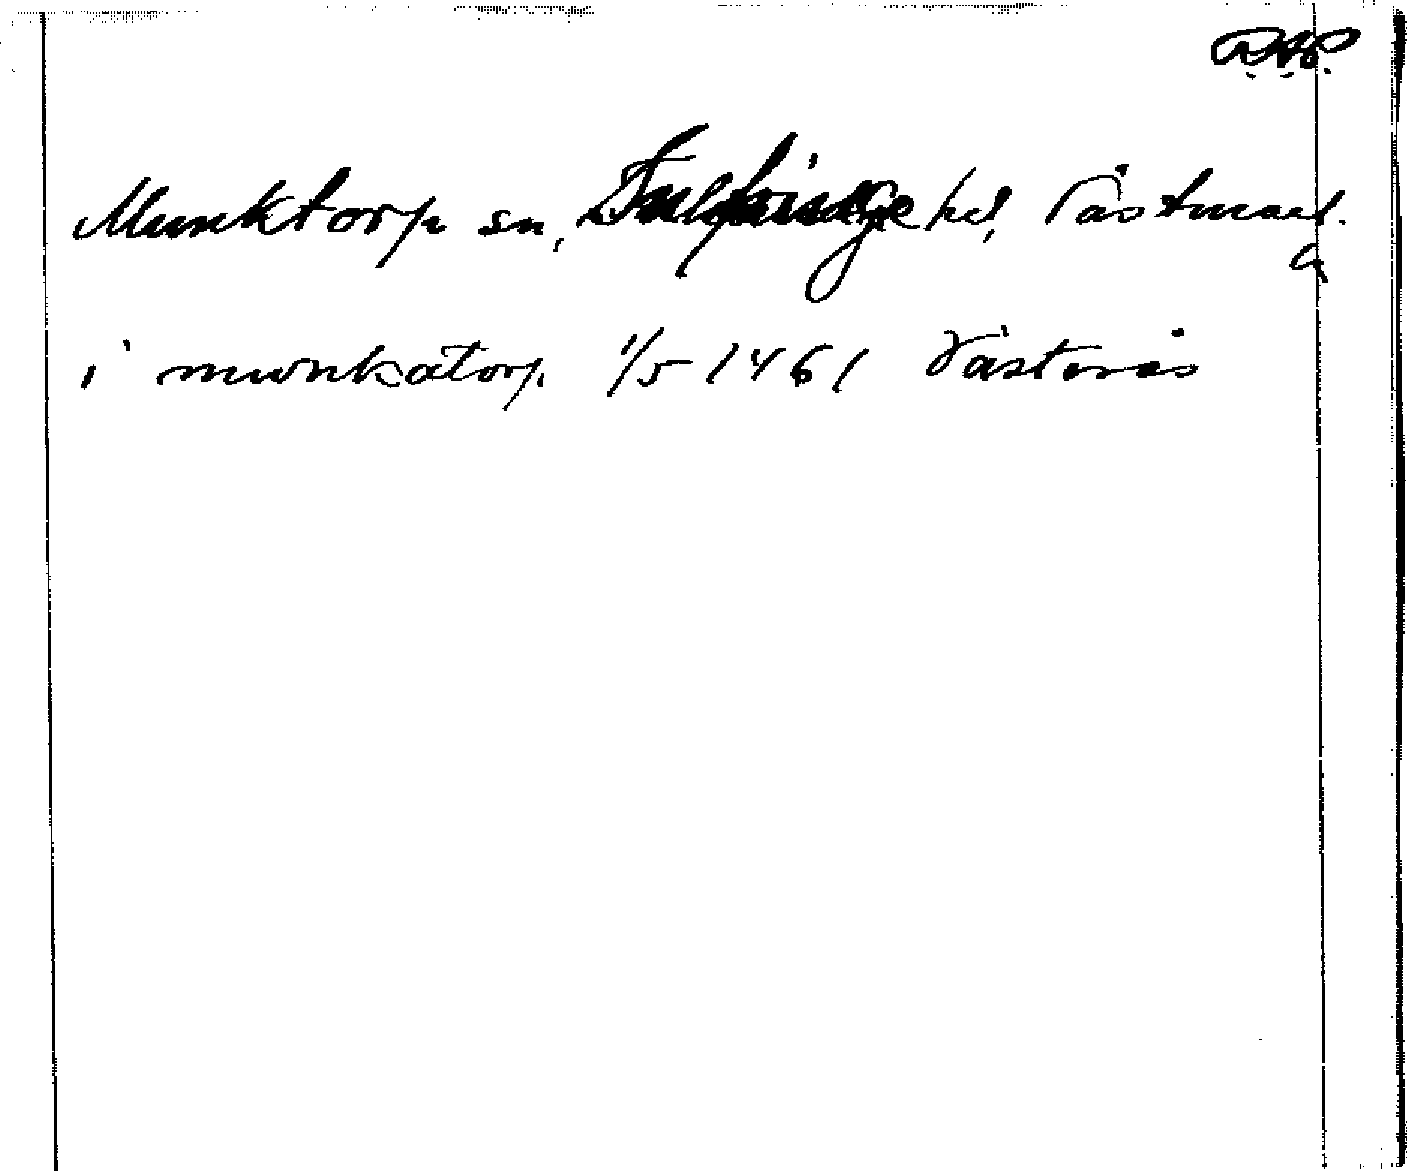 RAP.
Munktorp sn, Snefringe hd, Västmanl.
a
i munkatorp 1/5 1461 Västerås